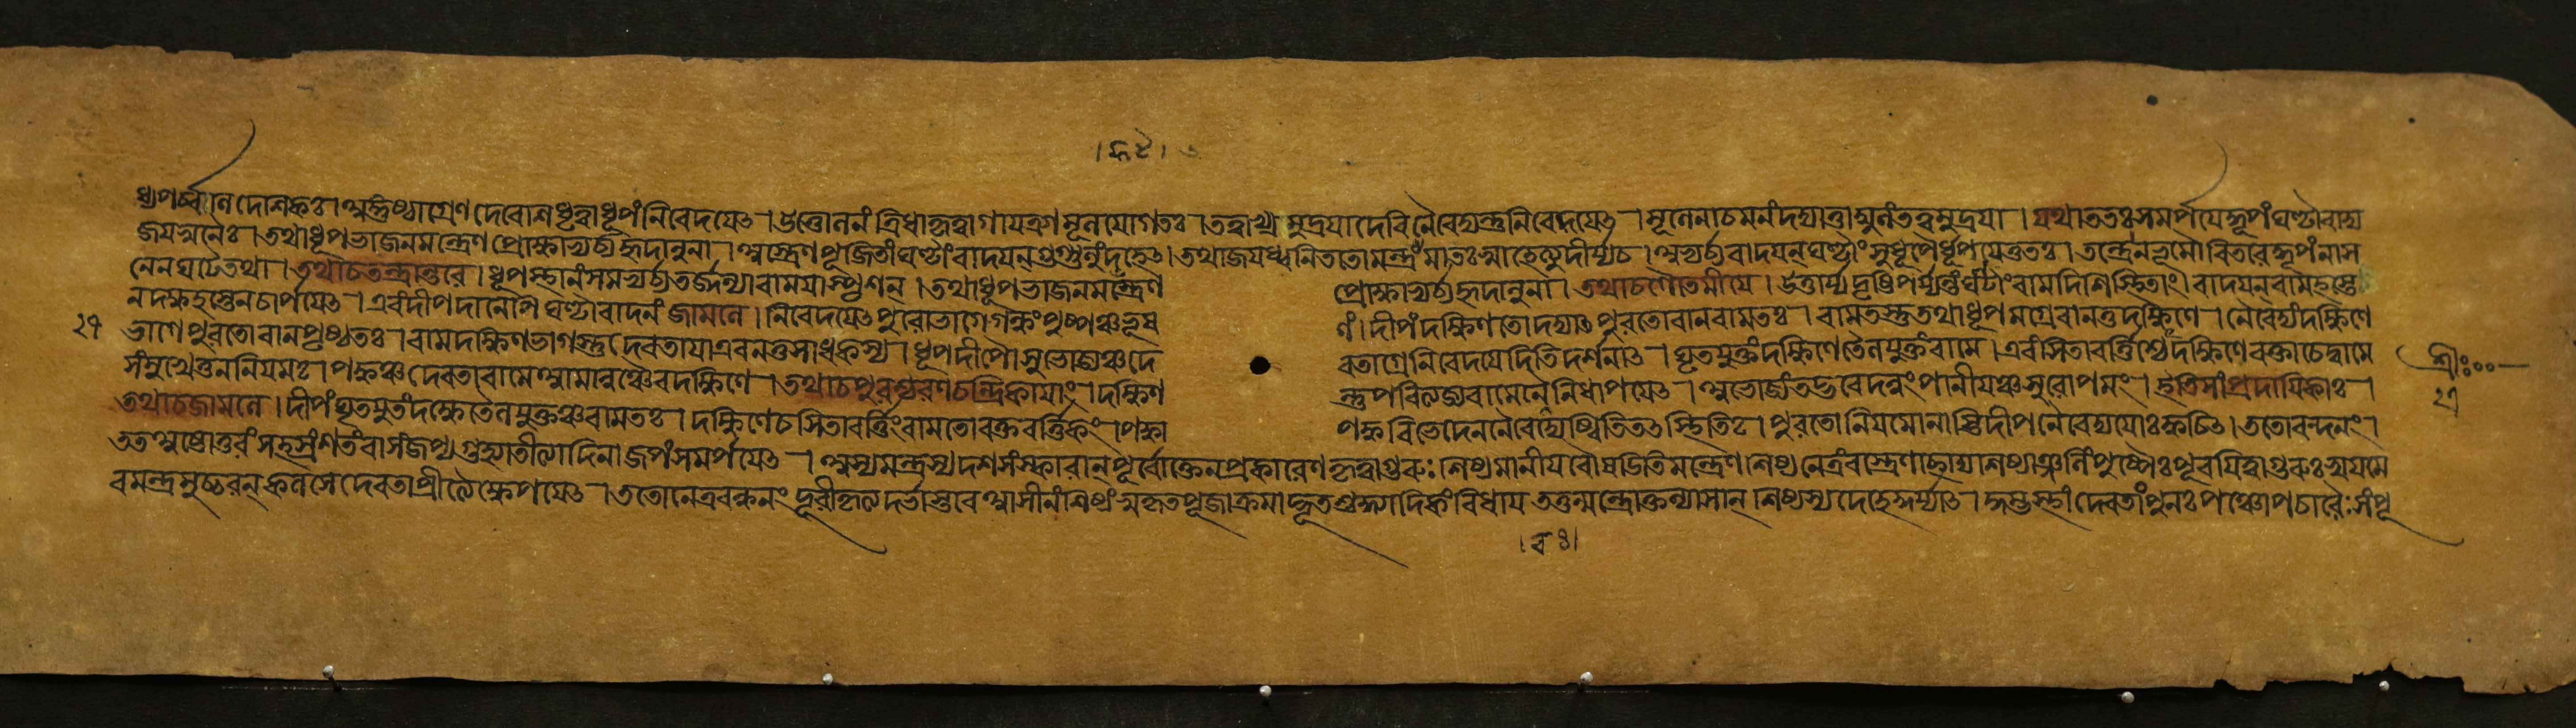 ।ক ৈ।
ধ্যপর্ব্বানিদেশিকঃ।অঙ্গুষ্ঠাগ্রেণদেবেশিধৃত্বাধূপংনিবেদয়েৎ।উত্তোলনংত্রিধাকৃত্বাগায়ত্র্যামূলযোগতঃ।তত্ত্বাখ্যমুদ্রয়াদেবিনৈবেদ্যন্তুনিবেদয়েৎ।মূলেনাচমনংদদ্যাত্তাম্বুলংতত্ত্বমুদ্রয়া।যথাততঃসমর্পয়েদ্ধূপংঘণ্টাবাদ্য
জয়স্বনৈঃ।তথাধূপভাজনমন্ত্রেণপ্রোক্ষ্যাভ্যর্চ্চ্যহৃদানুনা।অস্ত্রেণপূজিতাংঘণ্টাংবাদয়ন্গুগ্গুলুংদহেৎ।তথাজয়ধ্বনিততোমন্ত্রমাতঃস্বাহেত্যুদীর্য্যচ।অভ্যর্চ্চ্যবাদয়ন্ঘণ্টাংসুধূপৈর্ধূপয়েত্ততঃ।তন্ত্রেনহ্রমোবিতরেদ্ধূপংনাস
নেনঘটৈতথা।তথাচতন্ত্রান্তরে।ধূপস্থানংসমভ্যর্চ্চ্যতর্জ্জন্যাবাময়াস্পৃশন্।তথাধূপভাজনমন্ত্রেণ প্রোক্ষ্যাভ্যর্চ্চ্যহৃদানুনা।তথাচগৌতমীয়ে।উত্তার্য্যদৃষ্টিপর্য্যন্তংঘণ্টাংবামদিশিস্থিতাং।বাদয়ন্বামহস্তে
নদক্ষহস্তেনচার্পয়েৎ।এবংদীপদানেপিঘণ্টাবাদনংজামলে।নিবেদয়েৎপুরোভাগেগন্ধংপুষ্পঞ্চভূষ ণং।দীপংদক্ষিণতোদদ্যাৎপুরতোবানবামতঃ।বামতস্তুতথাধূপমগ্রেবানতুদক্ষিণে।নৈবেদ্যংদক্ষিণে
২৭ ভাগেপুরতোবানপৃষ্ঠতঃ।বামদক্ষিণভাগস্তুদেবতায়াএবনতুসাধকস্য।ধূপদীপৌসুভোজ্যঞ্চদে বতাগ্রেনিবেদয়েদিতিদর্শনাৎ।ঘৃতযুক্তংদক্ষিণেতৈলযুক্তংবামে।এবংসিতাবর্ত্তিশ্চেদ্দক্ষিণেরক্তাচেদ্বামে
সংমুখেতুননিয়মঃ।পক্বঞ্চদেবতাবামেআমান্নঞ্চৈবদক্ষিণে।তথাচপুরশ্চরণচন্দ্রিকায়াং।দক্ষিণ ন্তুপরিত্যজ্যবামেনৈনিধাপয়েৎ।অভোজ্যংতদ্ভবেদন্নংপানীয়ঞ্চসুরোপমং।ইতিসাংপ্রদায়িকাঃ।
তথাচজামলে।দীপংঘৃতযুতংদক্ষেতৈলযুক্তঞ্চবামতঃ।দক্ষিণেচসিতাবর্ত্তিংবামতোরক্তবর্ত্তিকং।পক্বা পক্ববিভেদেননৈবেদ্যেষ্বিতিতৎস্থিতিঃ।পুরতোনিয়মোনাস্তিদীপনৈবেদ্যয়োঃক্বচিৎ।ততোবন্দনং।
ততঅষ্টোত্তরংসহস্রংশতংবাসংজপ্যগুহ্যাতীত্যাদিনাজপংসমর্পয়েৎ।অস্যমন্ত্রস্যদশসংস্কারান্পূর্বোক্তেনপ্রকারেণকৃত্বাগুরুঃশিষ্যমানীয়বৌষডিতিমন্ত্রেণশিষ্যনেত্রংবস্ত্রেণাচ্ছাদ্যশিষ্যাঞ্জলিংপুষ্পৈঃপূরয়িত্বাগুরুঃস্বয়মে
বমন্ত্রমুচ্চরন্কলসেদেবতাপ্রীত্যৈক্ষেপয়েৎ।ততোনেত্রবন্ধনংদূরীকৃত্যদর্ভাস্তরেআসীনংশিষ্যংস্বকৃতপূজাক্রমাদ্ভূতশুদ্ধ্যাদিকংবিধায়তত্তন্মন্ত্রোক্তন্যাসান্শিষ্যস্যদেহেন্যস্যাৎ।কুম্ভস্থাংদেবতাংপুনঃপঞ্চোপচারৈঃসংপূ
শ্রীঃ
২৭
।বঃ।